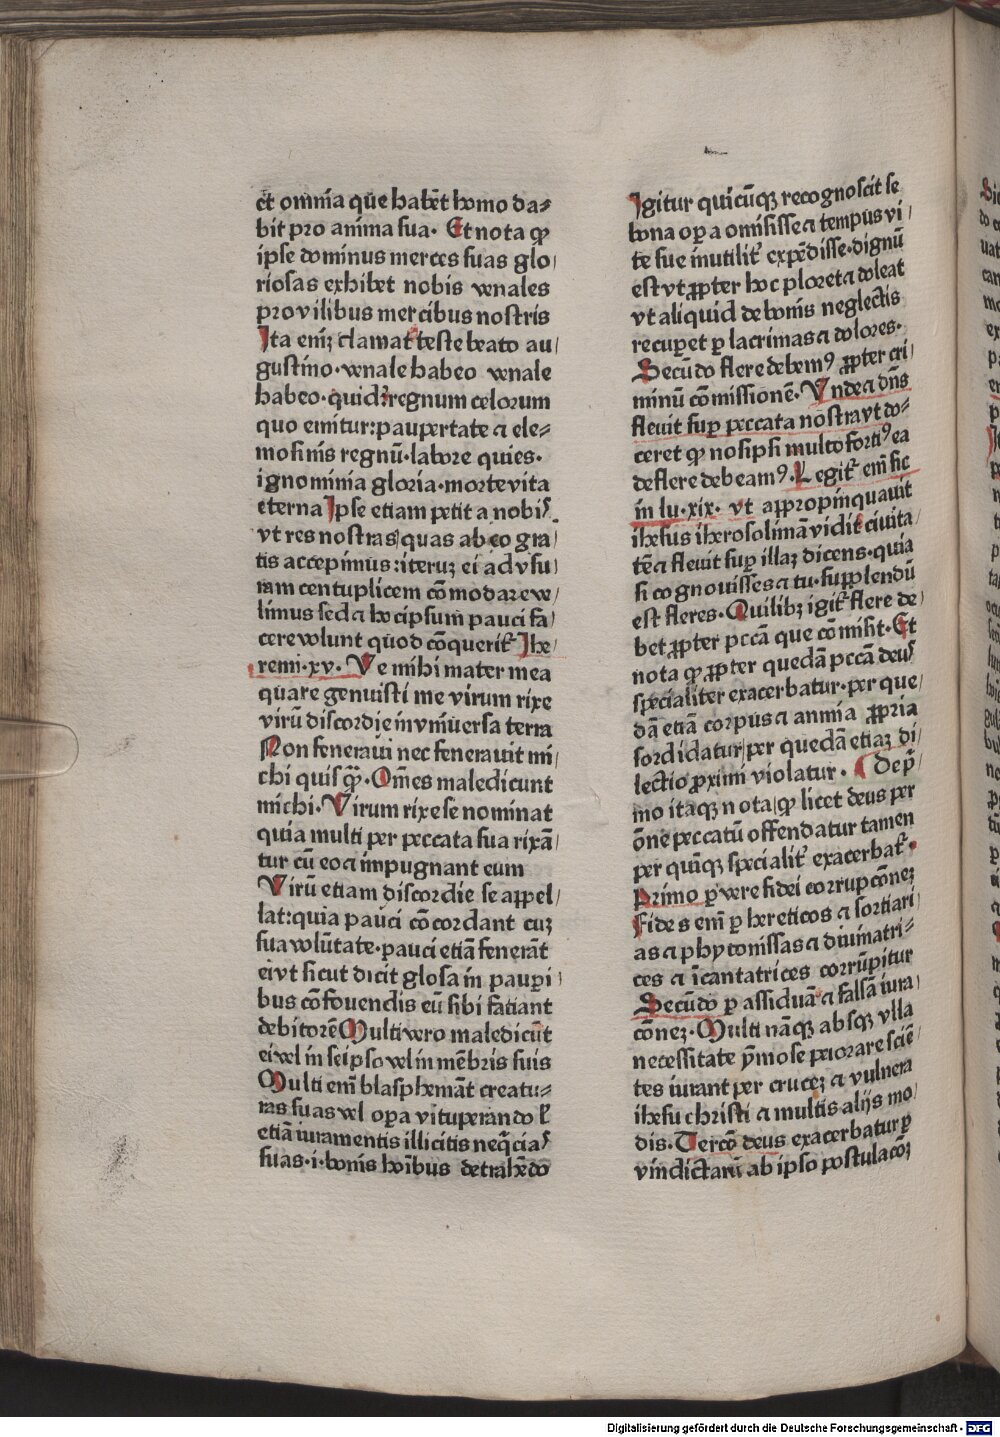 et omnia que habēt homo da⸗
bit pro anima sua· Et nota ꝙ
ipse dominus merces suas glo/
riosas exhibet nobis venales
pro vilibus mercibus nostris
Ita enīȝ clamat teste beato au/
gustino·venale habeo venale
habeo·quid?regnum celorum
quo emitur:paupertate ⁊ ele⸗
mosinis regnū·labore quies·
ignominia gloria·morte vita
eterna Ipse etiam petit a nobis
vt res nostras quas ab eo gra/
tis accepimus:iteruȝ ei ad vsu/
ram centuplicem cōmodare ve/
limus sed ⁊ hoc ipsum pauci fa/
cere volunt quod cōquerit᷑ Jhe/
remi·xv· Ve mihi mater mea
quare genuisti me virum rixe
virū discordie in vniuersa terra
Non feneraui nec fenerauit mi/
chi quisꝙ̄·Om̄es maledicunt
michi·Virum rixe se nominat
quia multi per peccata sua rixā/
tur cū eo ⁊ impugnant eum
Virū etiam discordie se appel/
lat:quia pauci cōcordant cuȝ
sua volūtate·pauci etiā fenerāt
ei vt sicut dicit glosa in pauꝑi/
bus cōfouendis eū sibi fatiant
debitorē Multi vero maledicūt
ei vel in seipso vel in mēbris suis
Multi enī blasphemāt creatu⸗
ras suas vel oꝑa vituperando ł
etiā iuramentis illicitis neq̄cias
suas·i·bonis hoībus detrahēdo
Igitur quicūqȝ recognoscit se
bona oꝑa omisisse ⁊ tempus vi/
te sue inutilit᷑ expēdisse·dignū
est vt ꝓpter hoc ploret ⁊ doleat
vt aliquid de bonis neglectis
recuꝑet ꝑ lacrimas ⁊ dolores·
Secūdo flere debemꝰ ꝓpter cri/
minū cōmissionē·Vnde ⁊ dn̄s
fleuit suꝑ peccata nostra vt do⸗
ceret ꝙ nosipsi multo fortiꝰ ea
deflere debeamꝰ·Legit᷑ enī sic
in lu·xix· vt appropinquauit
ihesus iherosolimā vidit ciuita/
tē ⁊ fleuit suꝑ illaȝ dicens·quia
si cognouisses ⁊ tu·supplendū
est fleres·Quilibȝ igit᷑ flere de/
bet ꝓpter pccā que cōmisit·Et
nota ꝙ ꝓpter quedā pccā deus
specialiter exacerbatur·per que/
dā etiā corpus ⁊ anima ꝓpria
sordidatur per quedā etiaȝ di/
lectio ꝓximi violatur· De p̄/
mo itaqȝ nota ꝙ licet deus per
ōne peccatū offendatur tamen
per quīqȝ specialit᷑ exacerbat᷑·
Primo ꝑ vere fidei corrupcōneȝ
Fides enī ꝑ hereticos ⁊ sortiari/
as ⁊ phytonissas ⁊ diuinatri⸗
ces ⁊ īcantatrices corrūpitur
Secūdo ꝑ assiduā ⁊ falsā iura/
cōneȝ·Multi nāqȝ absqȝ vlla
necessitate ȳmo se peiorare sciē/
tes iurant per cruceȝ ⁊ vulnera
ihesu christi ⁊ multis alijs mo/
dis·Tercō deus exacerbatur ꝑ
vindictam ab ipso postulacōȝ
Digitalisierung gefördert durch die Deutsche Forschungsgemeinschaft - DFG